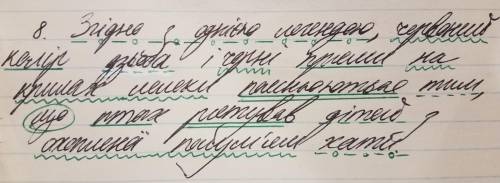 8. Згідно з однією легендою, червоний
колір дзьоба і чорні плями на
крилах лелеки пояснюються тим,
що птах рятував дітей з
охопленої полум'ям хати